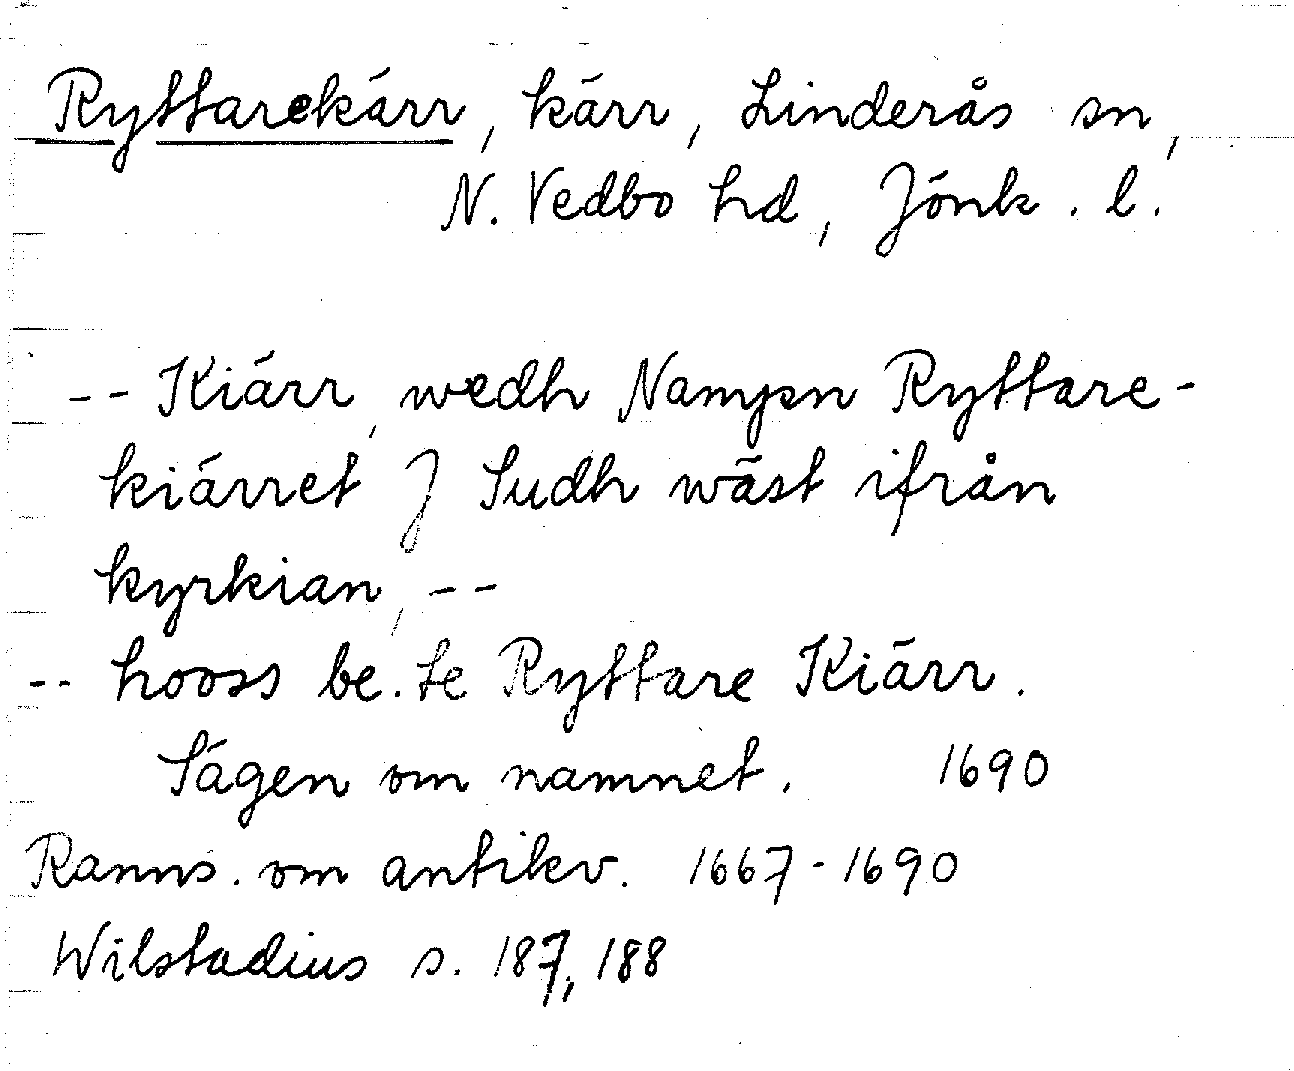 Ryttarekärr, kärr, Linderås sn,
N. Vedbo hd, Jönk. l.
-- Kiärr, wedh Nampn Ryttare-
kiärret J Sudh wäst ifrån
kyrkian, --
-- hooss be.te Ryttare Kiärr.
Sägen om namnet. 1690
Ranns. om antikv. 1667-1690
Wilstadius s. 187, 188